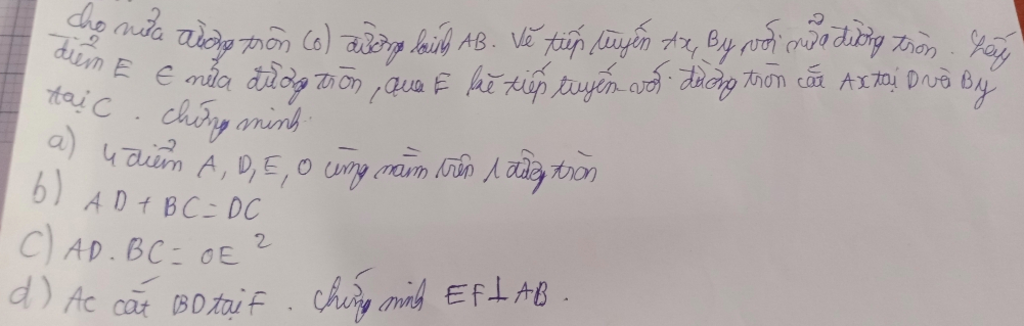 cho nửa đường tròn (O) đường kính AB. Vẽ tiếp tuyến Ax, By với nửa đường tròn. Lấy
điểm E ∈ nửa đường tròn, qua E kẻ tiếp tuyến với đường tròn cắt Ax tại D và By
tại C. Chứng minh:
a) 4 điểm A, D, E, O cùng nằm trên 1 đường tròn
b) AD + BC = DC
C) AD . BC = OE²
d) AC cắt BD tại F. Chứng minh EF ⊥ AB.